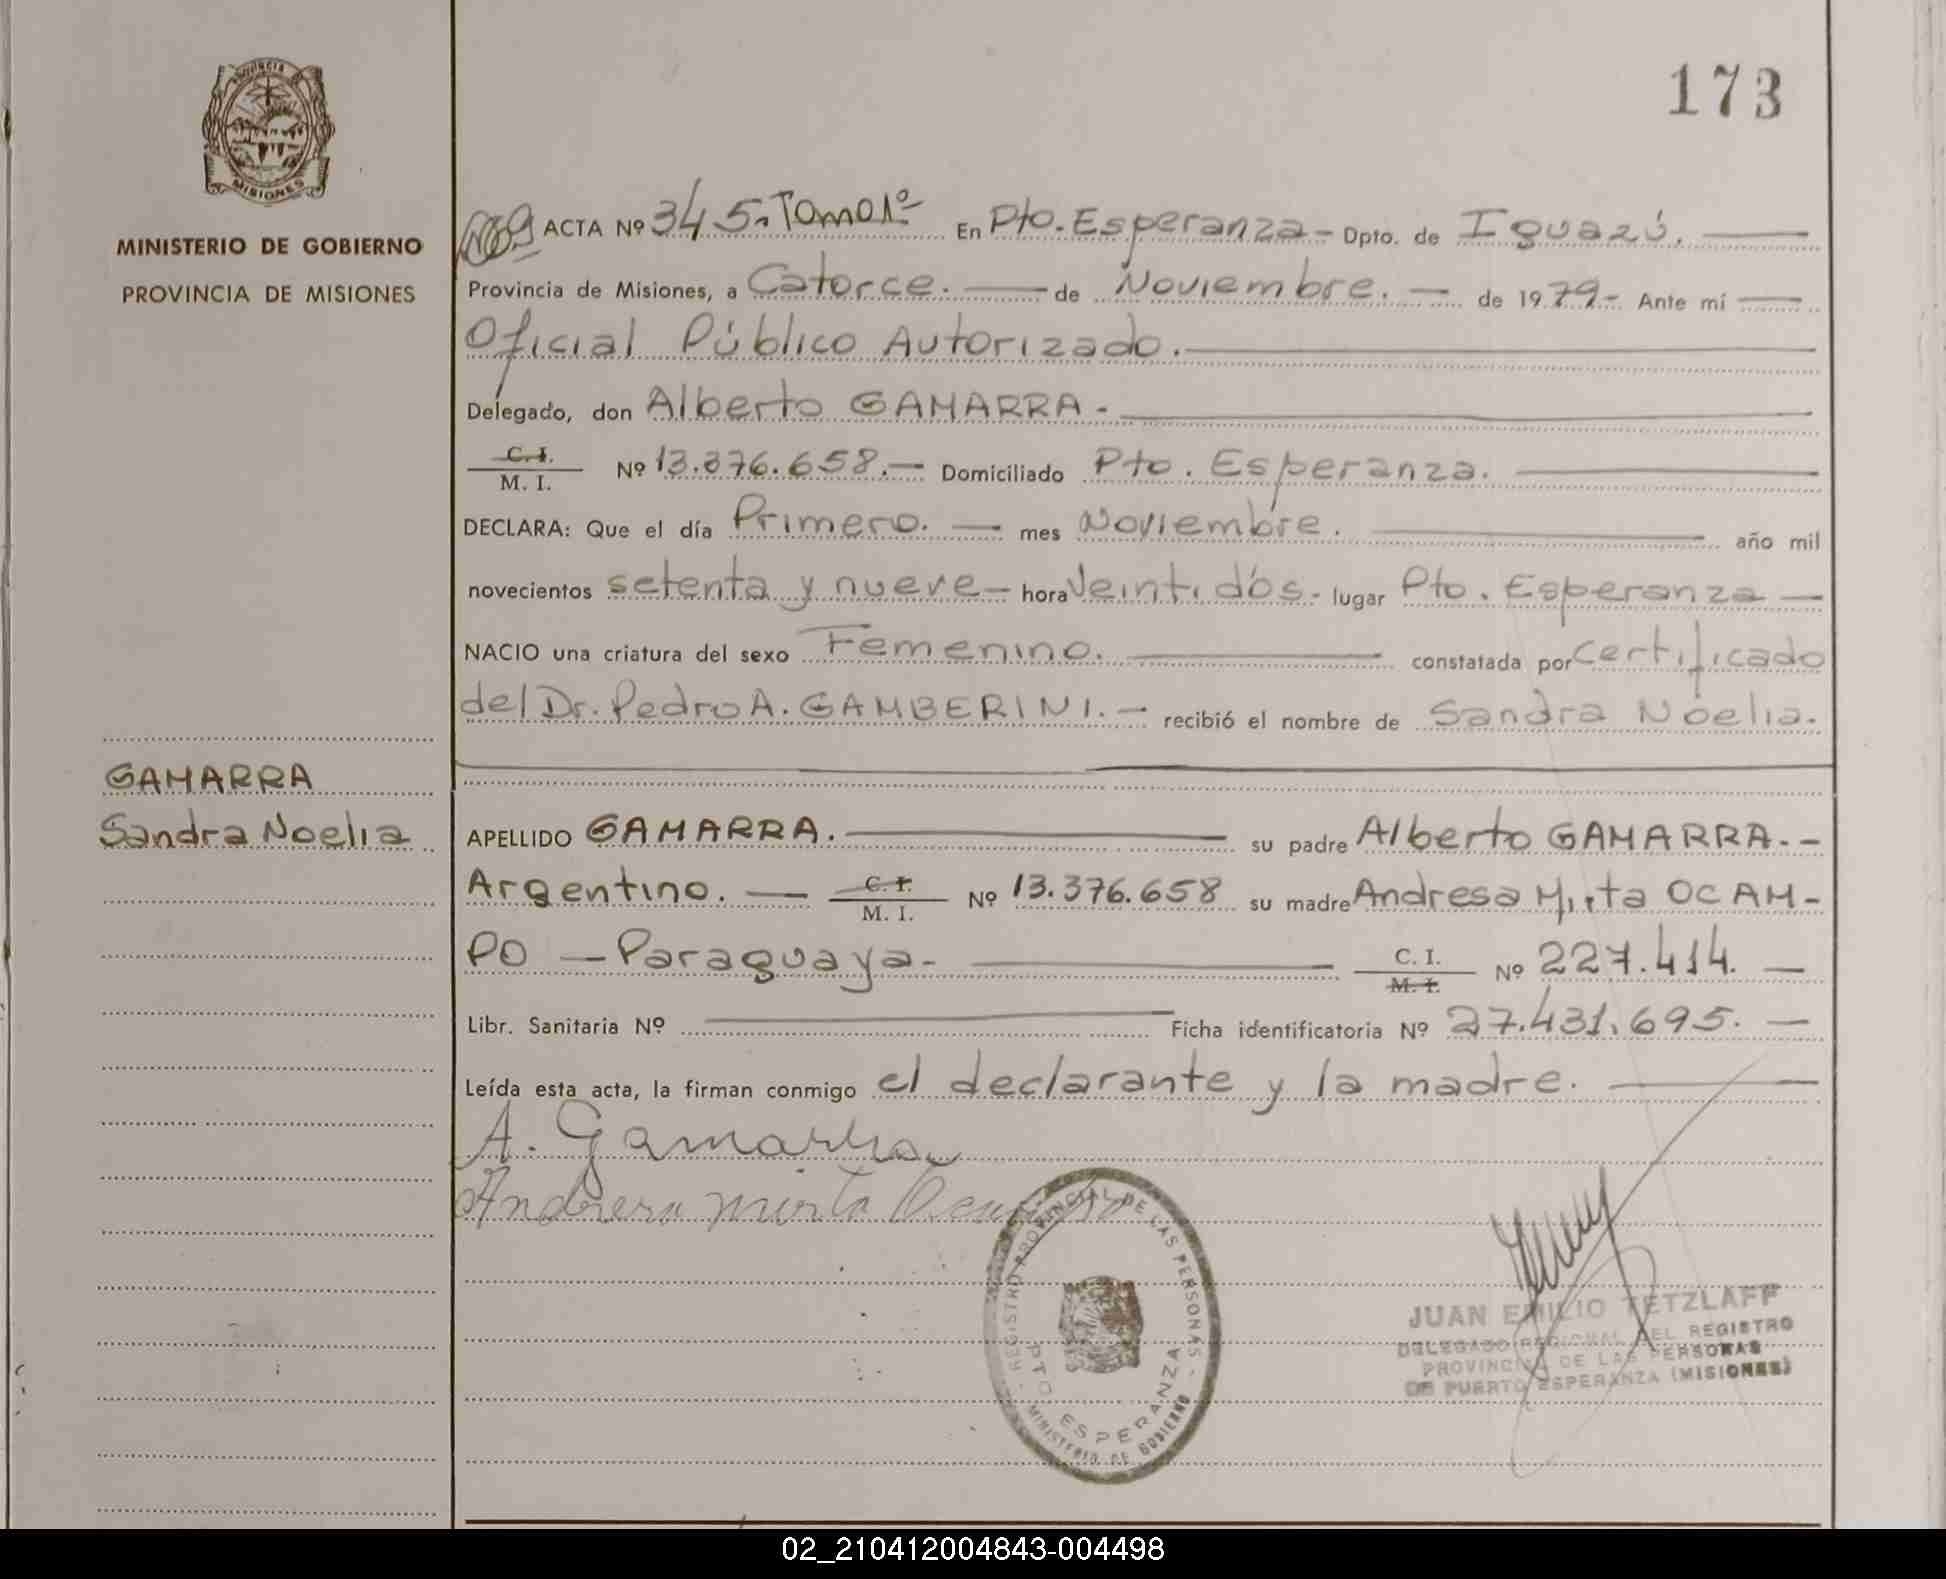 173
PROVINCIA DE
MISIONES
MINISTERIO DE GOBIERNO
PROVINCIA DE MISIONES
ACTA Nº 345. Tomo 1º En Pto. Esperanza - Dpto. de Iguazú.
Provincia de Misiones, a Catorce. de Noviembre. de 1979- Ante mí
Oficial Público Autorizado.
Delegado, don Alberto GAMARRA -
C. I.
M. I. Nº 13.376.658. Domiciliado Pto. Esperanza.
DECLARA: Que el día Primero. mes Noviembre. año mil
novecientos setenta y nueve - hora Veintidós - lugar Pto. Esperanza
NACIO una criatura del sexo Femenino. constatada por certificado
del Dr. Pedro A. GAMBERINI. recibió el nombre de Sandra Noelia.
GAMARRA
Sandra Noelia
APELLIDO GAMARRA. su padre Alberto GAMARRA. -
Argentino. C. I.
M. I. Nº 13.376.658 su madre Andresa Mirta OCAM-
PO - Paraguaya - C. I.
M. I. Nº 227.414.
Libr. Sanitaria Nº Ficha identificatoria Nº 27.431.695.
Leída esta acta, la firman conmigo el declarante y la madre.
A. Gamarra
Andresa mirta Ocampo
REGISTRO PROVINCIAL DE LAS PERSONAS
PTO ESPERANZA
MINISTERIO DE GOBIERNO
JUAN EMILIO TETZLAFF
DELEGADO REGIONAL DEL REGISTRO
PROVINCIAL DE LAS PERSONAS
DE PUERTO ESPERANZA (MISIONES)
02_210412004843-004498